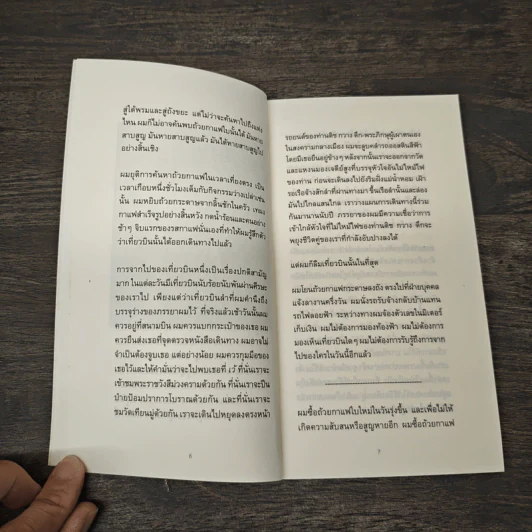 สู่ใต้พรมและสู่ถังขยะ แต่ไม่ว่าจะค้นหาไปถึงแห่ง
ไหน ผมก็ไม่อาจค้นพบถ้วยกาแฟใบนั้นได้ มันหาย
สาบสูญ มันหายสาบสูญแล้ว มันได้หายสาบสูญไป
อย่างสิ้นเชิง
ผมยุติการค้นหาถ้วยกาแฟในเวลาเที่ยงตรง เป็น
เวลาเกือบหนึ่งชั่วโมงเต็มกับกิจกรรมว่างเปล่าเช่น
นั้น ผมหยิบถ้วยกระดาษจากลิ้นชักในครัว เทผง
กาแฟสำเร็จรูปอย่างสิ้นหวัง กดน้ำร้อนและคนอย่าง
ช้าๆ จิบแรกของรสกาแฟนั่นเองที่ทำให้ผมรู้สึกตัว
ว่าเที่ยวบินนั้นได้ออกเดินทางไปแล้ว
การจากไปของเที่ยวบินหนึ่งเป็นเรื่องปกติสามัญ
มาก ในแต่ละวันมีเที่ยวบินนับร้อยนับพันผ่านศีรษะ
ของเราไป เพียงแต่ว่าเที่ยวบินลำที่ผมคำนึงถึง
บรรจุร่างของภรรยาผมไว้ ที่จริงแล้วเช้าวันนั้นผม
ควรอยู่ที่สนามบิน ผมควรแบกกระเป๋าของเธอ ผม
ควรยืนส่งเธอที่จุดตรวจหนังสือเดินทาง ผมอาจไม่
จำเป็นต้องจูบเธอ แต่อย่างน้อย ผมควรกุมมือของ
เธอไว้และให้คำมั่นว่าจะไปพบเธอที่ เว้ ที่นั่นเราจะ
เข้าชมพระราชวังสีม่วงความด้วยกัน ที่นั่นเราจะปีน
ป่ายป้อมปราการโบราณด้วยกัน และที่นั่นเราจะ
ชมวัดเทียนมู่ด้วยกัน เราจะเดินไปหยุดลงตรงหน้า
6
รถยนต์ของท่านติช กวาง ดึ๊ก-พระภิกษุผู้เผาตนเอง
ในสงครามกลางเมือง ผมจะลูบคลำรถออสตินสีฟ้า
โดยมีเธอยืนอยู่ข้างๆ หลังจากนั้นเราจะออกจากวัด
และแหงนมองเจดีย์สูงที่บรรจุหัวใจอันไม่ไหม้ไฟ
ของท่าน ก่อนจะเดินลงไปยังริมฝั่งแม่น้ำหอม เฝ้า
รอเรือจ้างสักลำที่ผ่านทางมา ขึ้นเรือลำนั้นและล่อง
มันไปไกลแสนไกล เราวางแผนการเดินทางนี้ร่วม
กันมานานนับปี ภรรยาของผมมีความเชื่อว่าการ
เข้าใกล้หัวใจที่ไม่ไหม้ไฟของท่านติช กวาง ดึ๊กจะ
พยุงชีวิตคู่ของเราที่กำลังอับปางลงได้
แต่ผมก็ลืมเที่ยวบินนั้นในที่สุด
ผมโยนถ้วยกาแฟกระดาษลงถัง ตรงไปที่ฝ่ายบุคคล
แจ้งลางานครึ่งวัน ผมนั่งรถรับจ้างกลับบ้านแทน
รถไฟลอยฟ้า ระหว่างทางผมจ้องตัวเลขในมิเตอร์
เก็บเงิน ผมไม่ต้องการมองท้องฟ้า ผมไม่ต้องการ
มองเห็นเที่ยวบินใดๆ ผมไม่ต้องการรับรู้ถึงการจาก
ไปของใครในวันนี้อีกแล้ว
ผมซื้อถ้วยกาแฟใบใหม่ในวันรุ่งขึ้น และเพื่อไม่ให้
เกิดความสับสนหรือสูญหายอีก ผมซื้อถ้วยกาแฟ
7